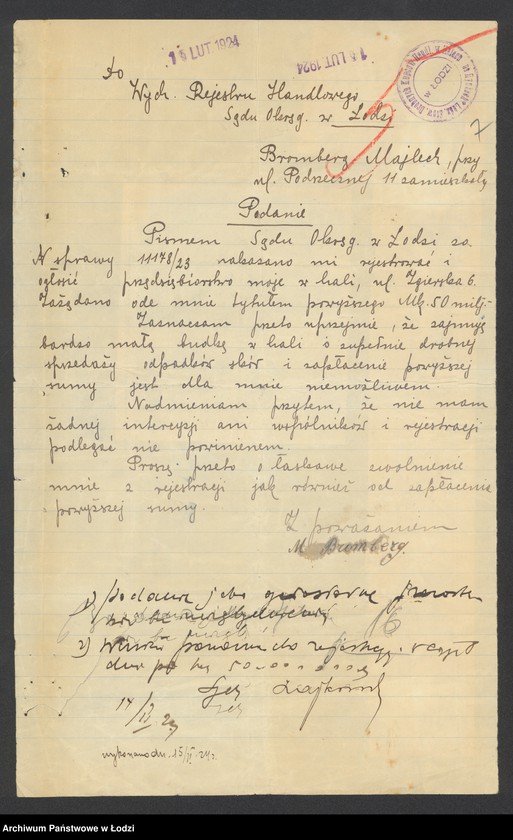 15 LUT. 1924
15 LUT. 1924
w ŁODZI
7
Do
Wydz. Rejestru Handlowego
Sądu Okręg. w Łodzi
Bromberg Majlech, przy
ul. Podrzecznej 11 zamieszkały
Podanie
Pismem Sądu Okręg. w Łodzi za
N sprawy 11178/23 nakazano mi rejestrować i
ogłosić przedsiębiorstwo moje w hali, ul. Zgierska 6.
Zażądano ode mnie tytułem powyższego Mk. 50 milj.
Zaznaczam przeto uprzejmie, że zajmuję
bardzo małą budkę w hali o zupełnie drobnej
sprzedaży odpadków skór i zapłacenie powyższej
sumy jest dla mnie niemożliwem.
Nadmieniam przytem, że nie mam
żadnej intercyzji ani wspólników i rejestracji
podlegać nie powinienem.
Proszę przeto o łaskawe zwolnienie
mnie z rejestracji jak również od zapłacenia
powyższej sumy.
Z poważaniem
M Bromberg.
1) podanie jako
2)
50.000.000
14/II 24
wykonano dn. 15/II 24 r.
Archiwum Państwowe w Łodzi